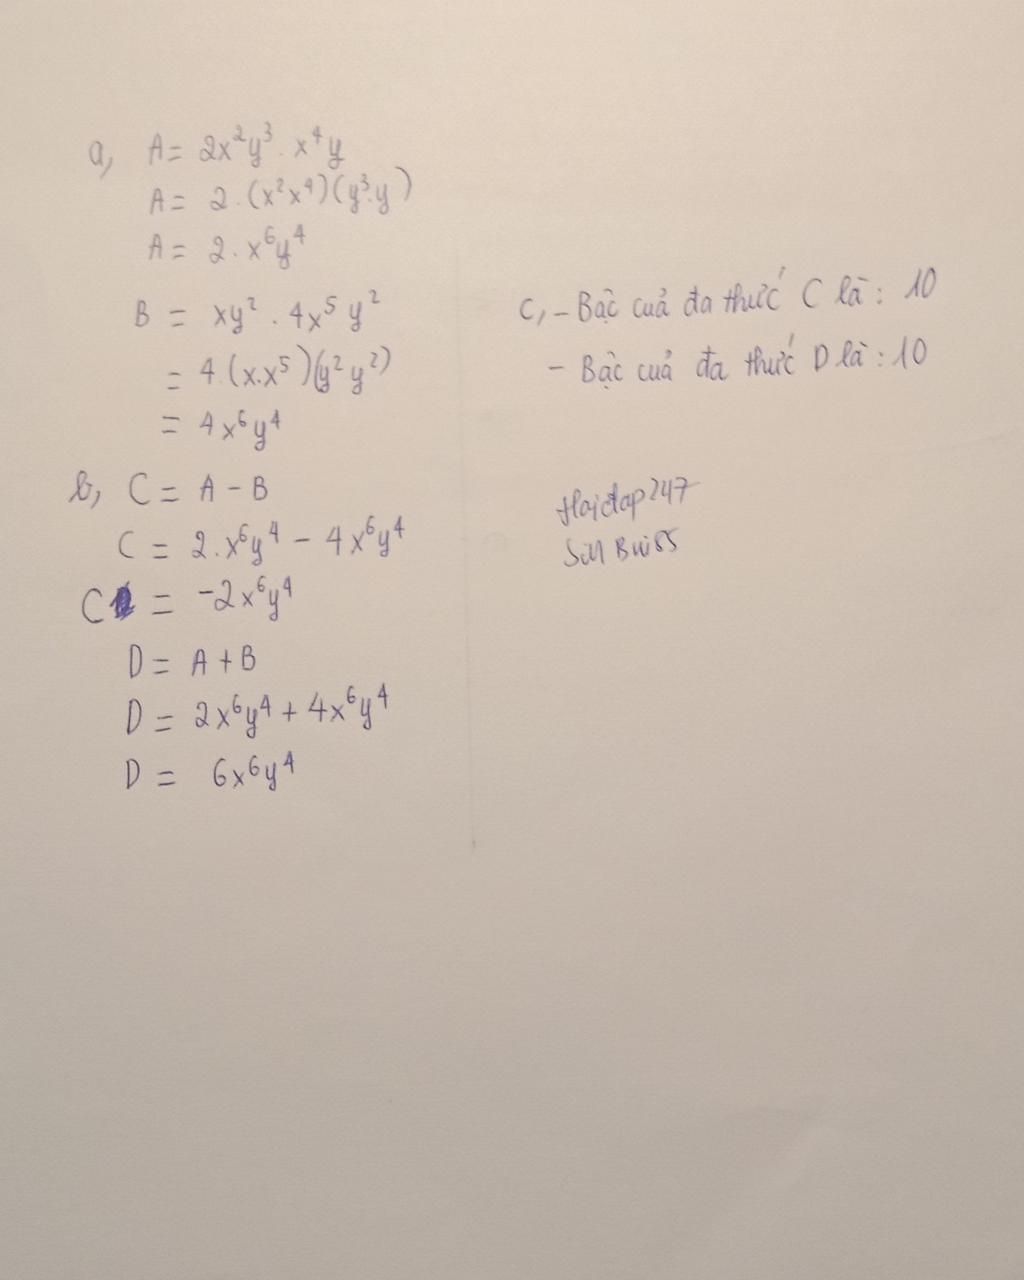 a, A = 2x²y³ . x⁴y
A = 2 . (x²x⁴)(y³.y)
A = 2 . x⁶y⁴
B = xy² . 4x⁵y²
= 4.(x.x⁵)(y²y²)
= 4x⁶y⁴
b, C = A - B
C = 2.x⁶y⁴ - 4x⁶y⁴
C = -2x⁶y⁴
D = A + B
D = 2x⁶y⁴ + 4x⁶y⁴
D = 6x⁶y⁴
C, - Bậc cuả đa thức C là : 10
- Bậc cuả đa thức D là : 10
Hoidap247